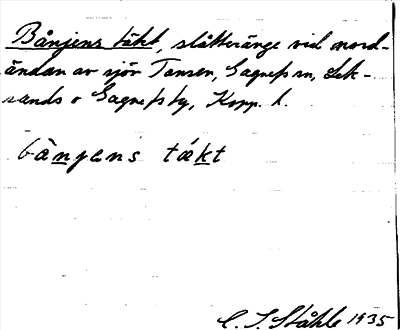 Bånjens täkt, slåtteränge vid nord-
ändan av sjön Tansen, Gagnefs sn, Lek-
sands o Gagnefs tg, Kopp. l.
bånjens täkt
C. I. Ståhle 1935